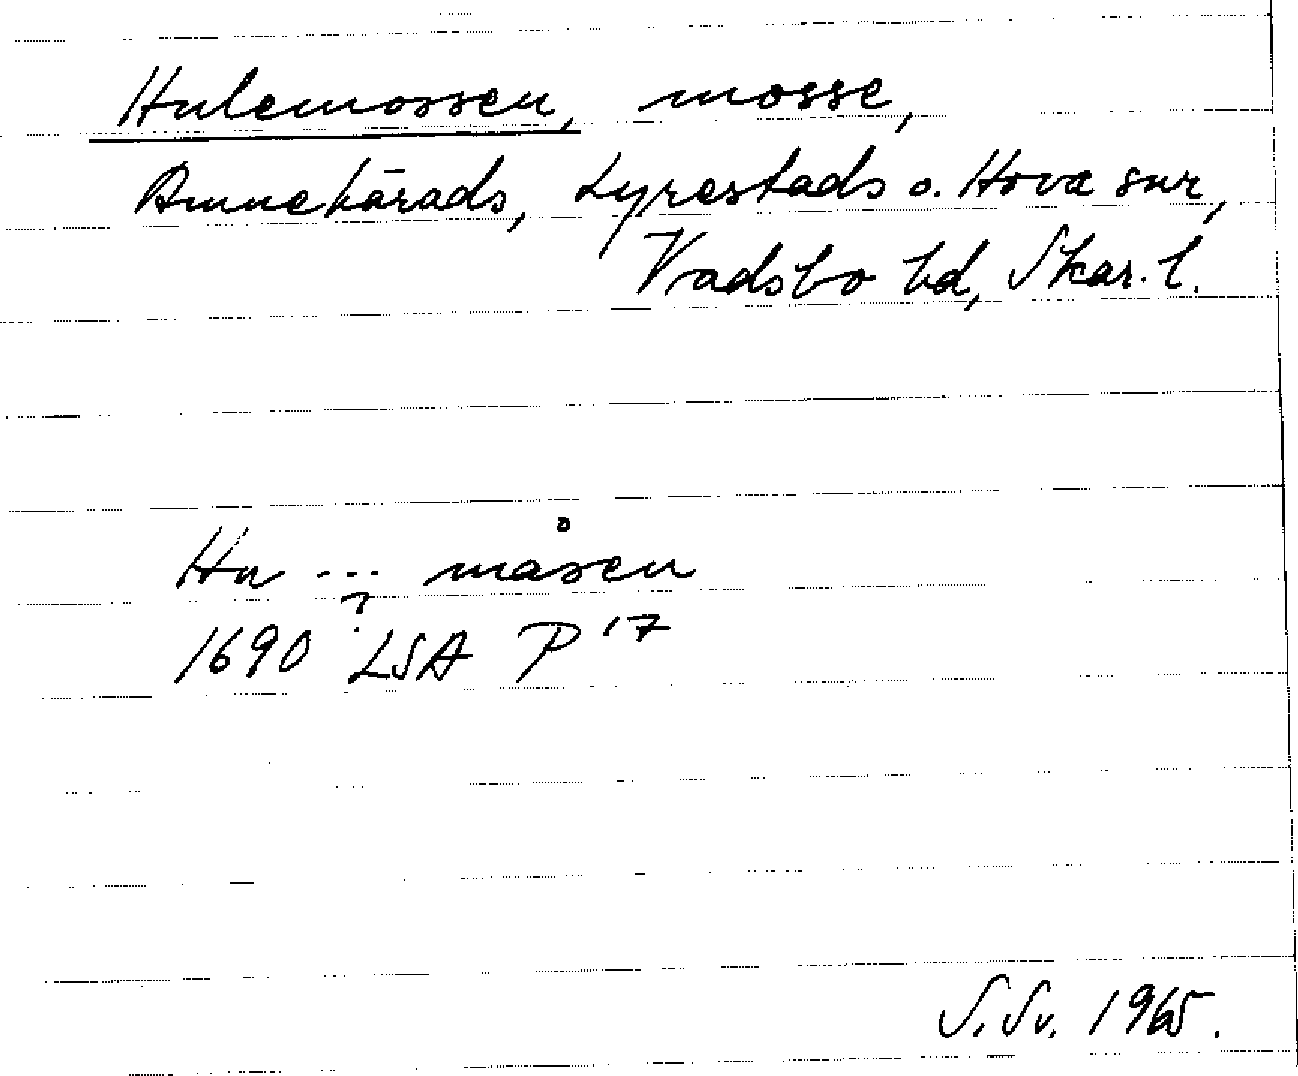 Hulemossen, mosse,
Amnehärads, Lyrestads o. Hova snr,
Vadsbo hd, Skar. l.
Hu ... måsen
?
1690 LSA P 17
S. Sv. 1965.